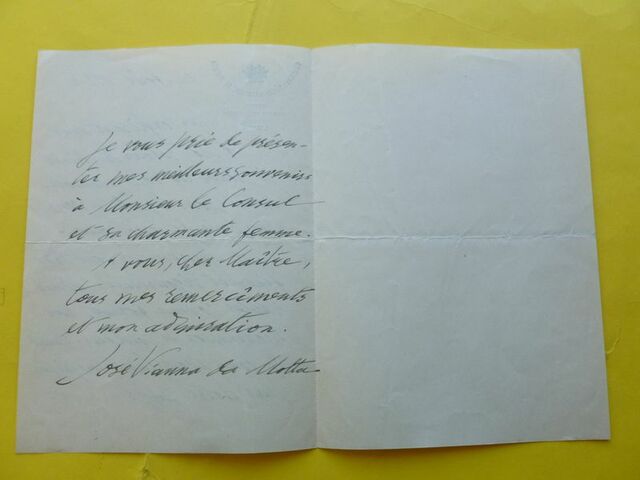 Je vous prie de présen-
ter mes meilleurs souvenirs
à Monsieur le Consul
et sa charmante femme.
A vous, cher Maître,
tous mes remercîments
et mon admiration.
José Vianna da Motta